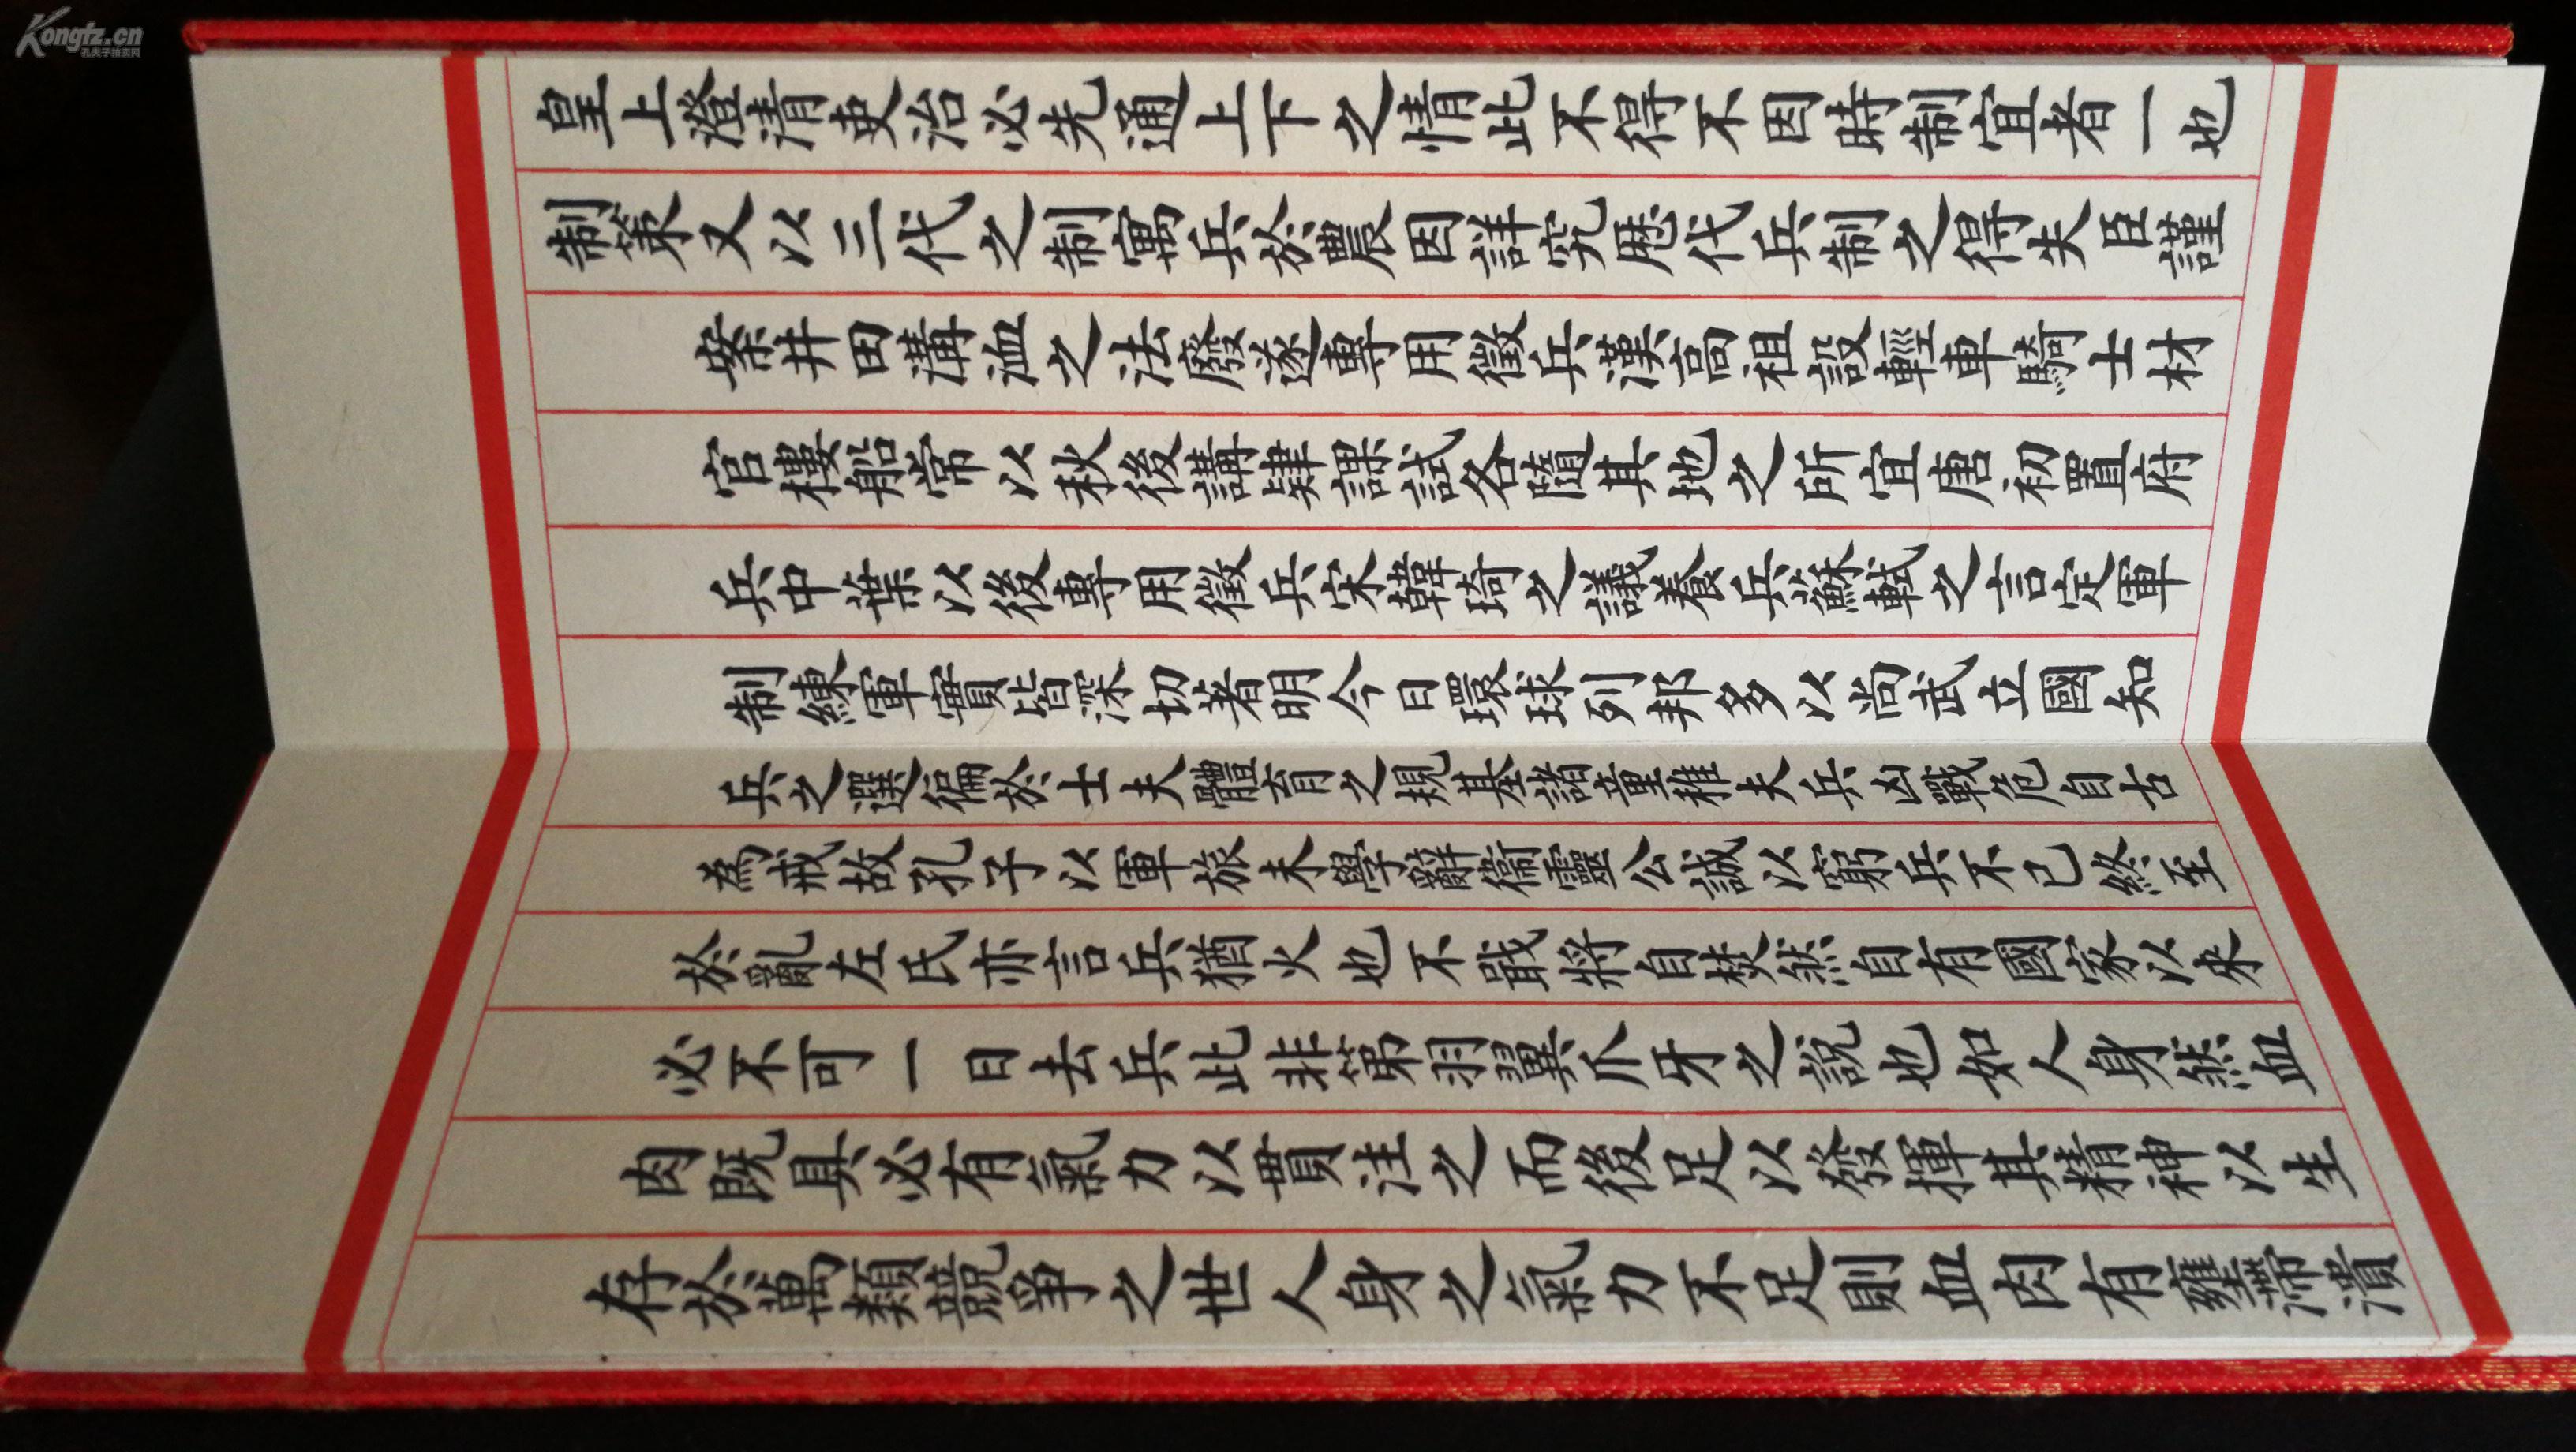 皇上澄清吏治必先通上下之情此不得不因時制宜者一也
制策又以三代之制寓兵於農因詳究歷代兵制之得失臣謹
案井田溝洫之法廢遂專用徵兵漢高祖設輕車騎士材
官樓船常以秋後講肄課試各隨其地之所宜唐初置府
兵中葉以後專用徵兵宋韓琦之議養兵蘇軾之言定軍
制練軍實皆深切著明今日環球列邦多以尚武立國知
兵之選徧於士夫體育之規基諸童稚夫兵凶戰危自古
為戒故孔子以軍旅未學辭衛靈公誠以窮兵不已終至
於亂左氏亦言兵猶火也不戢將自焚然自有國家以來
必不可一日去兵此非第羽翼爪牙之說也如人身然血
肉既具必有氣力以貫注之而後足以發揮其精神以生
存於萬類競爭之世人身之氣力不足則血肉有壅滯潰
Kongfz.cn
孔夫子拍卖网